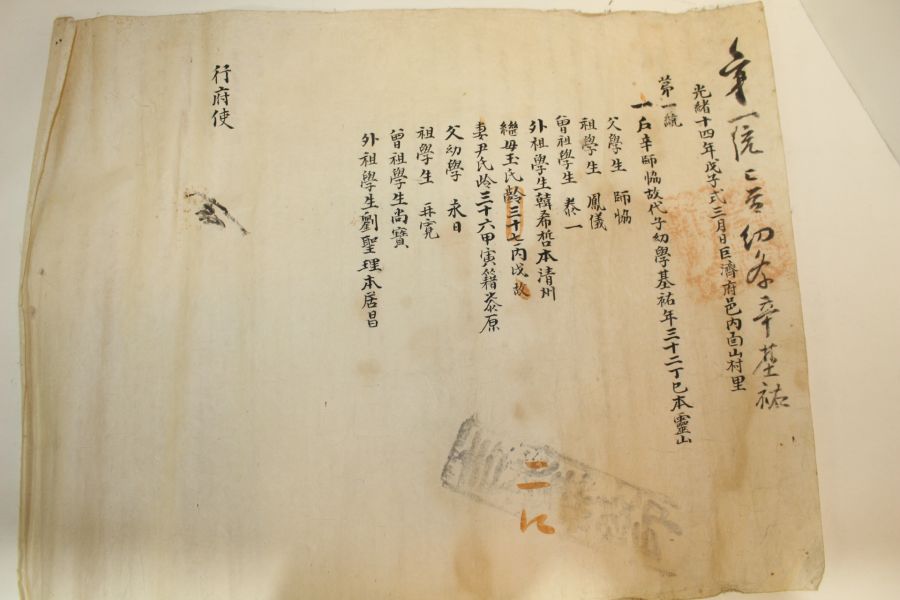 第一統 幼學辛基祐
光緒十四年戊子式三月日巨濟府邑内面山村里
第一統
一戶辛師恊故代子幼學基祐年三十二丁巳本靈山
父學生 師恊
祖學生 鳳儀
曾祖學生 泰一
外祖學生韓希哲本清州
繼母玉氏齡三十七丙戌故
妻尹氏齡三十六甲寅籍 原
父幼學 永日
祖學生
曾祖學生尚寶
外祖學生劉聖理本居昌
行府使
二 口